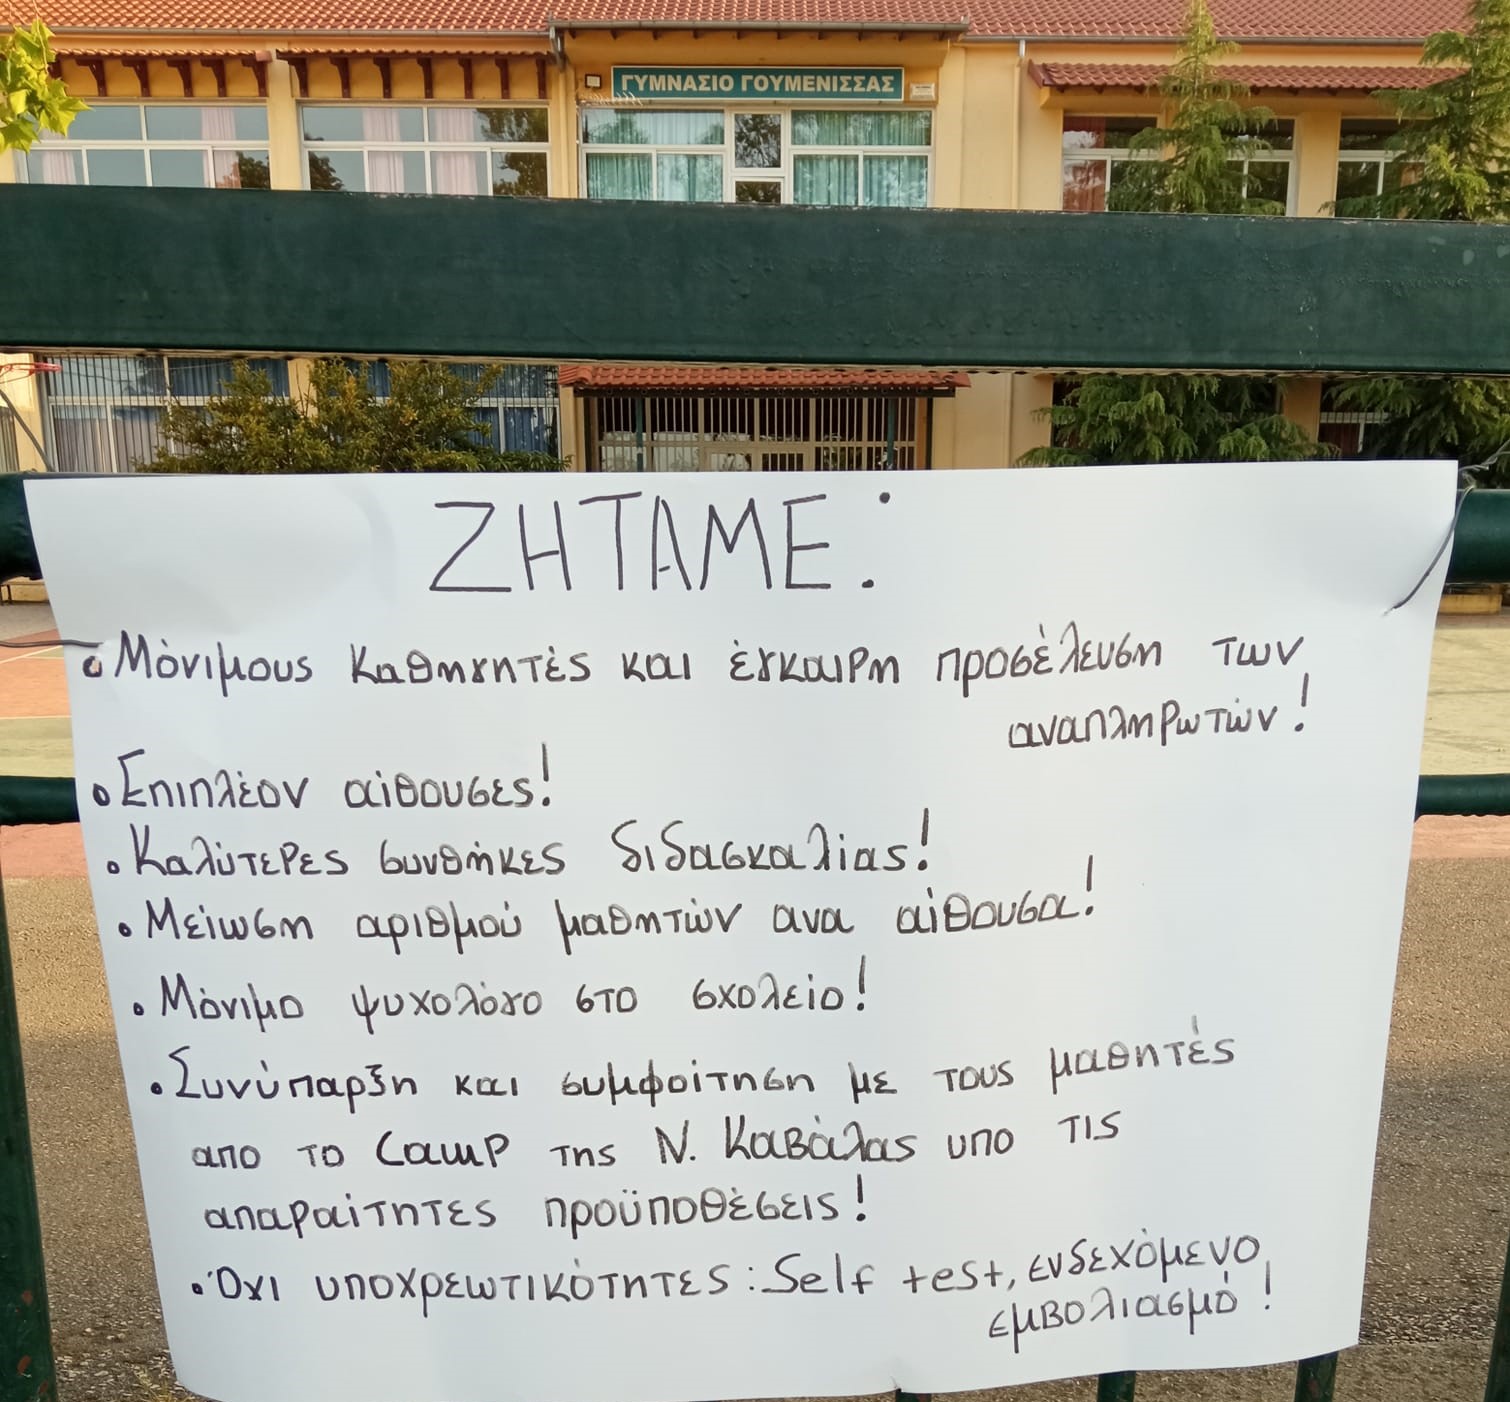 ΓΥΜΝΑΣΙΟ ΓΟΥΜΕΝΙΣΣΑΣ
ΖΗΤΑΜΕ:
Μόνιμους καθηγητές και έγκαιρη προσέλευση των
αναπληρωτών!
Επιπλέον αίθουσες!
Καλύτερες συνθήκες διδασκαλίας!
Μείωση αριθμού μαθητών ανα αίθουσα!
Μόνιμο ψυχολόγο στο σχολείο!
Συνύπαρξη και συμφοίτηση με τους μαθητές
απο το Camp της Ν. Καβάλας υπο τις
απαραίτητες προϋποθέσεις!
Όχι υποχρεωτικότητες: Self test, ενδεχόμενο
εμβολιασμό!